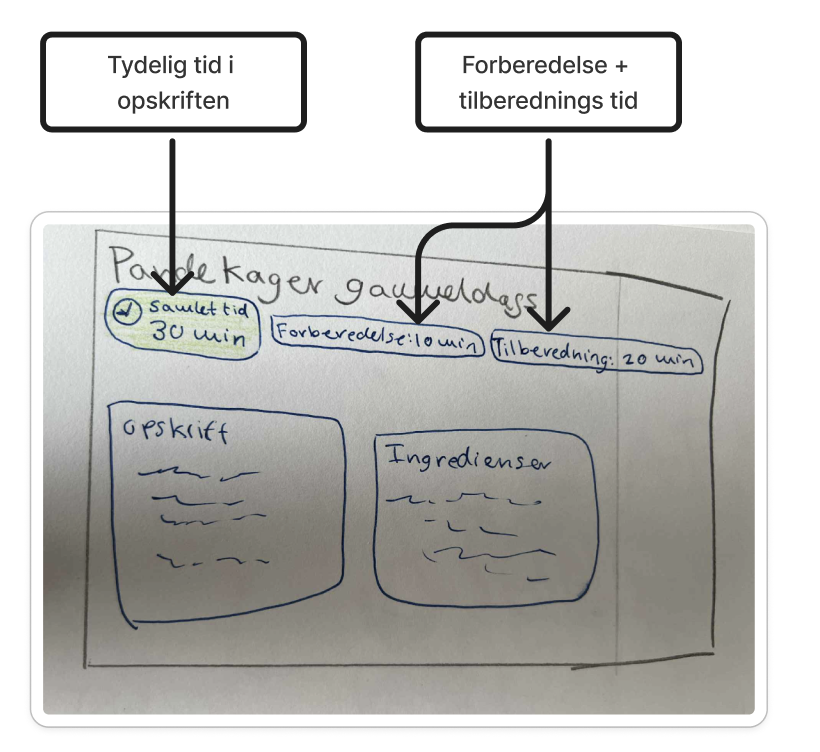 Tydelig tid i
opskriften
Forberedelse +
tilberednings tid
Pandekager gammeldags
Samlet tid
30 min
Forberedelse: 10 min
Tilberedning: 20 min
opskrift
Ingredienser